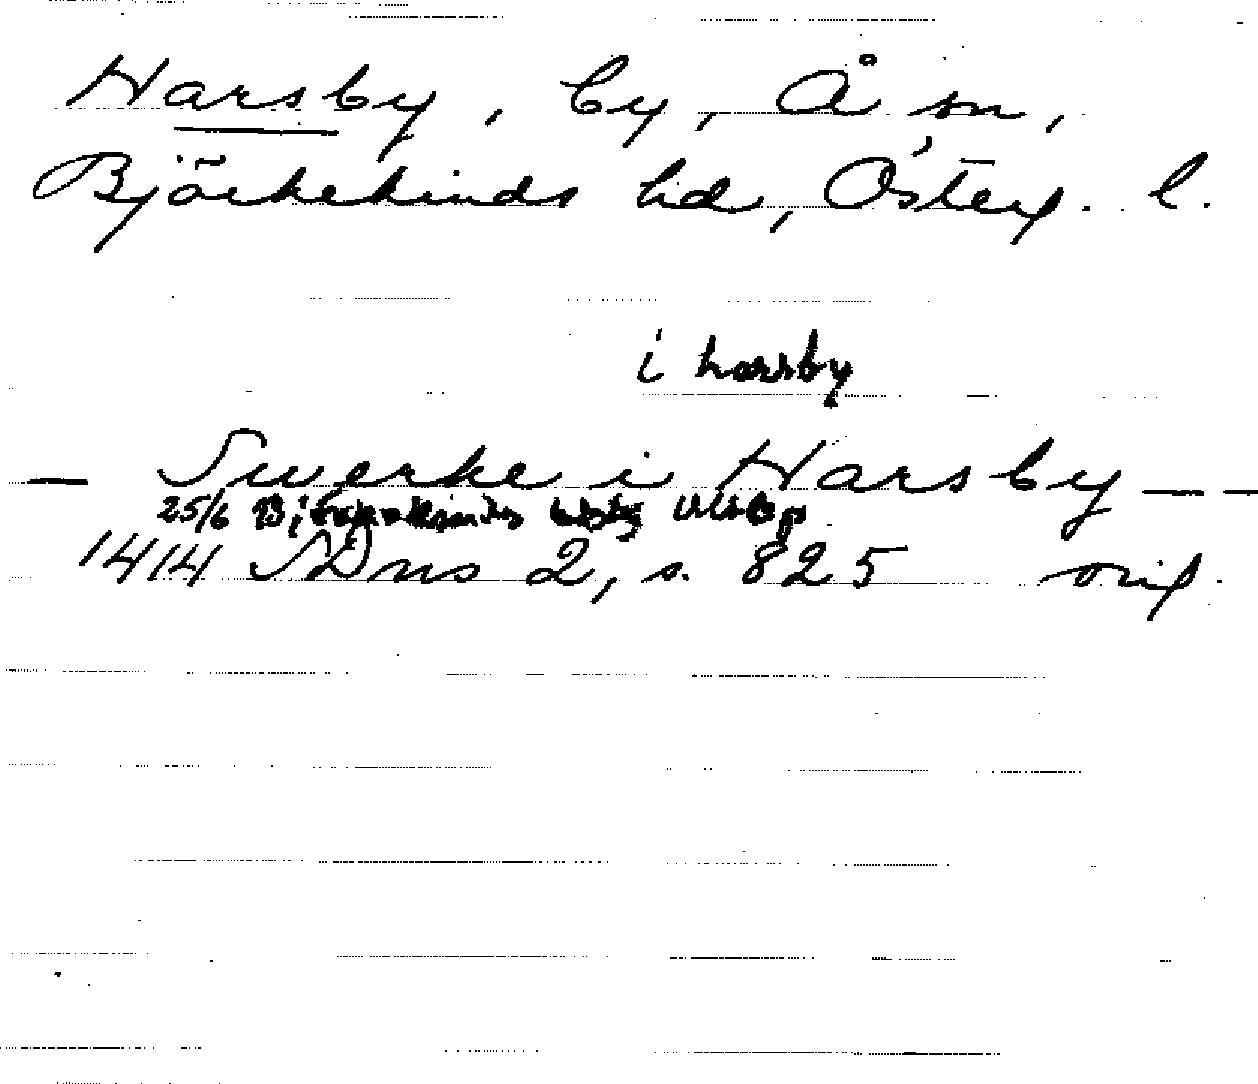 Harsby, by, Å sn,
Björkekinds hd, Österg. l.
i harsby
— Swerke i Harsby — —
25/6
1414 SDns 2, s. 825 orig.